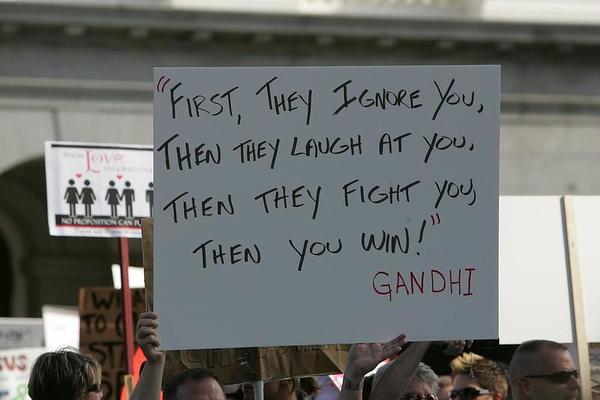 "FIRST, THEY IGNORE YOU,
THEN THEY LAUGH AT YOU,
THEN THEY FIGHT YOU,
THEN YOU WIN!"
GANDHI
Love
NO PROPOSITION CAN
TO